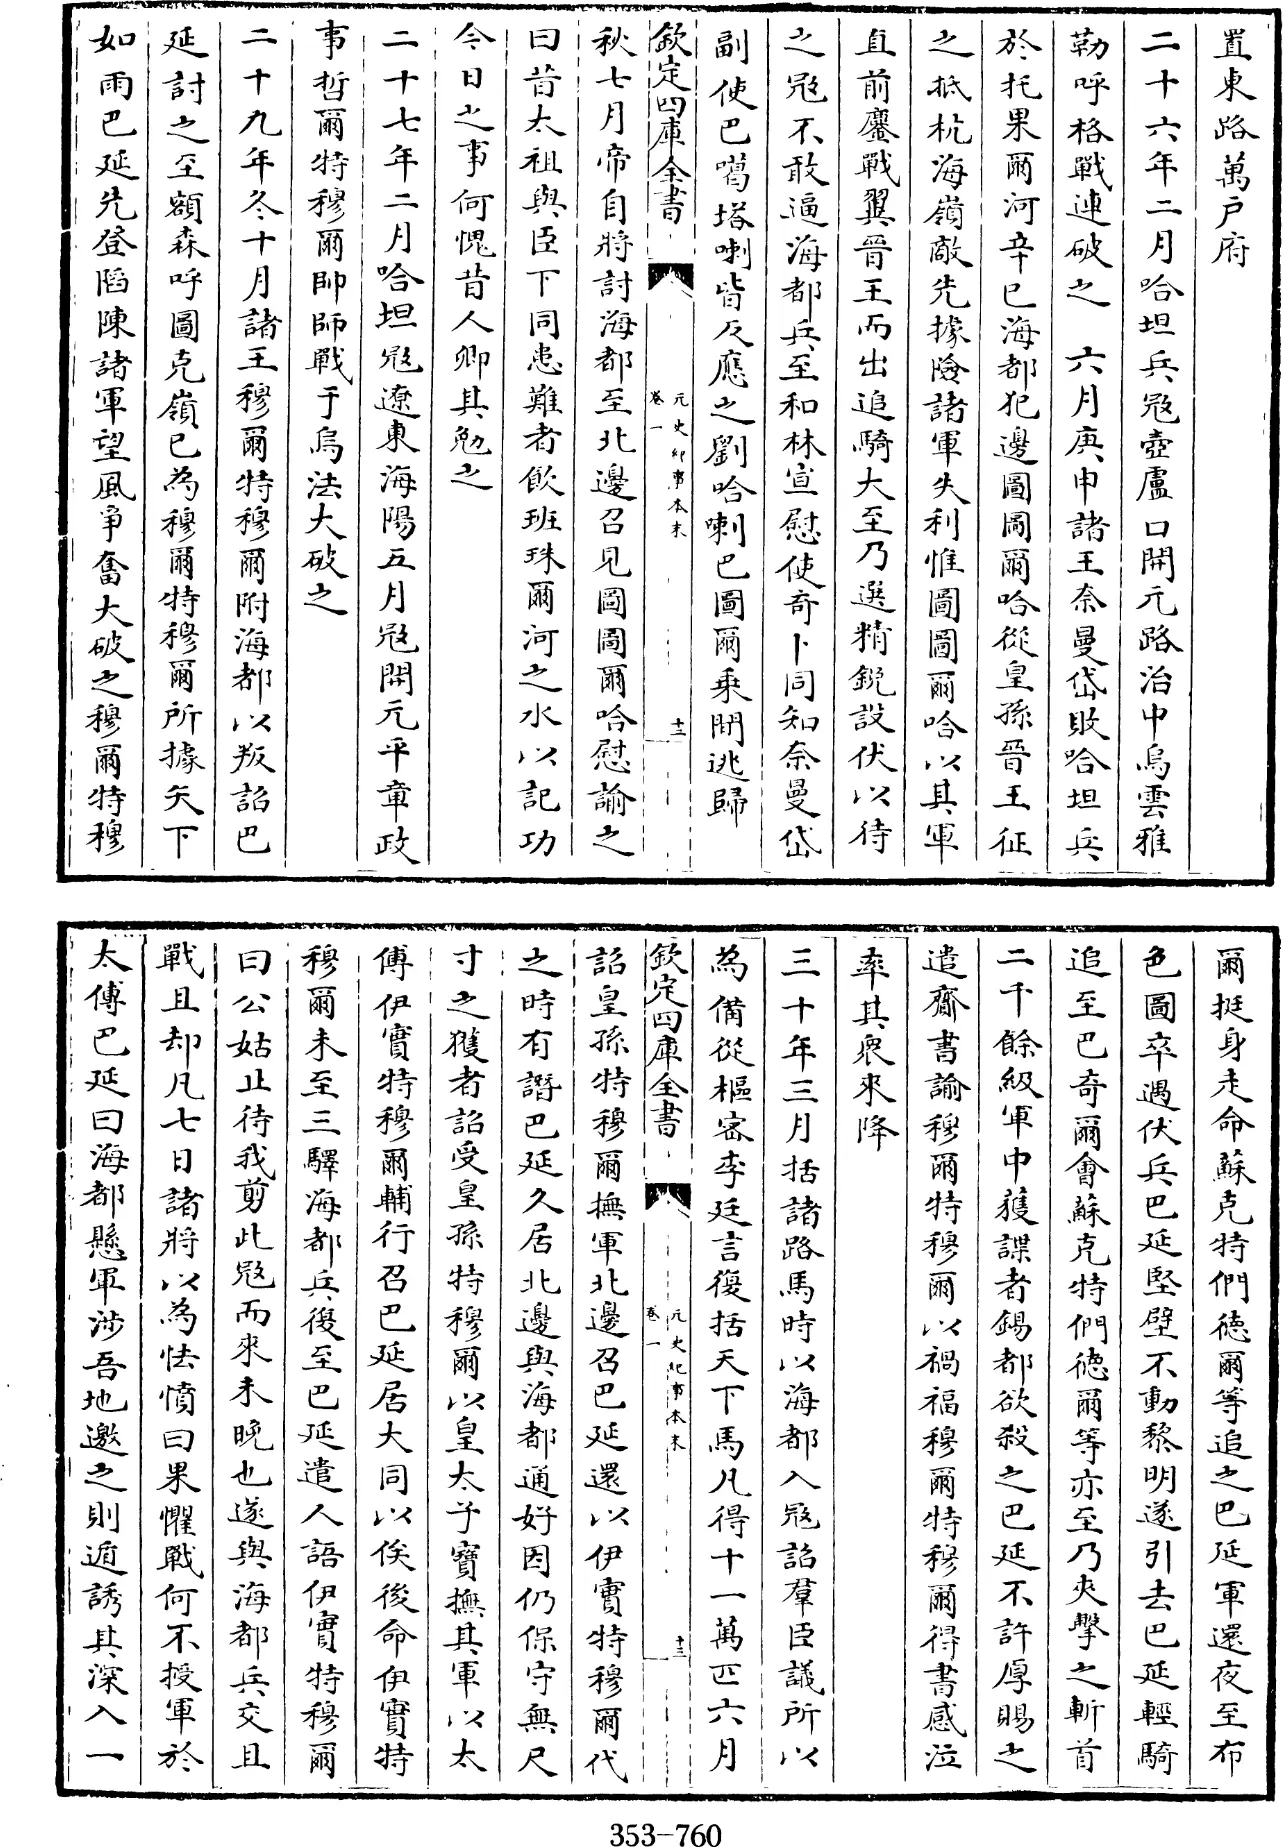 置東路萬户府
二十六年二月哈坦兵宼壺盧口開元路治中烏雲雅
勒呼格戰連破之　六月庚申諸王奈曼岱敗哈坦兵
於托果爾河辛巳海都犯邊圖圖爾哈從皇孫晉王征
之抵杭海嶺敵先據險諸軍失利惟圖圖爾哈以其軍
直前鏖戰翼晉王而出追騎大至乃選精鋭設伏以待
之宼不敢逼海都兵至和林宣慰使奇卜同知奈曼岱
副使巴噶塔喇皆反應之劉哈喇巴圖爾乗間逃歸
欽定四庫全書
元史紀事本末
卷一
十三
秋七月帝自將討海都至北邊召見圖圖爾哈慰諭之
曰昔太祖與臣下同患難者飲班珠爾河之水以記功
今日之事何愧昔人卿其勉之
二十七年二月哈坦宼遼東海陽五月宼開元平章政
事哲爾特穆爾帥師戰于烏法大破之
二十九年冬十月諸王穆爾特穆爾附海都以叛詔巴
延討之至額森呼圖克嶺已為穆爾特穆爾所據矢下
如雨巴延先登䧟陳諸軍望風争奮大破之穆爾特穆
爾挺身走命蘇克特們德爾等追之巴延軍還夜至布
色圖卒遇伏兵巴延堅壁不動黎明遂引去巴延輕騎
追至巴奇爾會蘇克特們德爾等亦至乃夾擊之斬首
二千餘級軍中獲諜者錫都欲殺之巴延不許厚賜之
遣齎書諭穆爾特穆爾以禍福穆爾特穆爾得書感泣
率其衆來降
三十年三月括諸路馬時以海都入宼詔羣臣議所以
為備從樞密李廷言復括天下馬凡得十一萬匹六月
欽定四庫全書
元史紀事本末
卷一
十三
詔皇孫特穆爾撫軍北邊召巴延還以伊實特穆爾代
之時有譖巴延久居北邊與海都通好因仍保守無尺
寸之獲者詔受皇孫特穆爾以皇太子寶撫其軍以太
傅伊實特穆爾輔行召巴延居大同以俟後命伊實特
穆爾未至三驛海都兵復至巴延遣人語伊實特穆爾
曰公姑止待我剪此宼而來未晚也遂與海都兵交且
戰且却凡七日諸將以為怯憤曰果懼戰何不授軍於
太傅巴延曰海都懸軍涉吾地邀之則遁誘其深入一
353-760